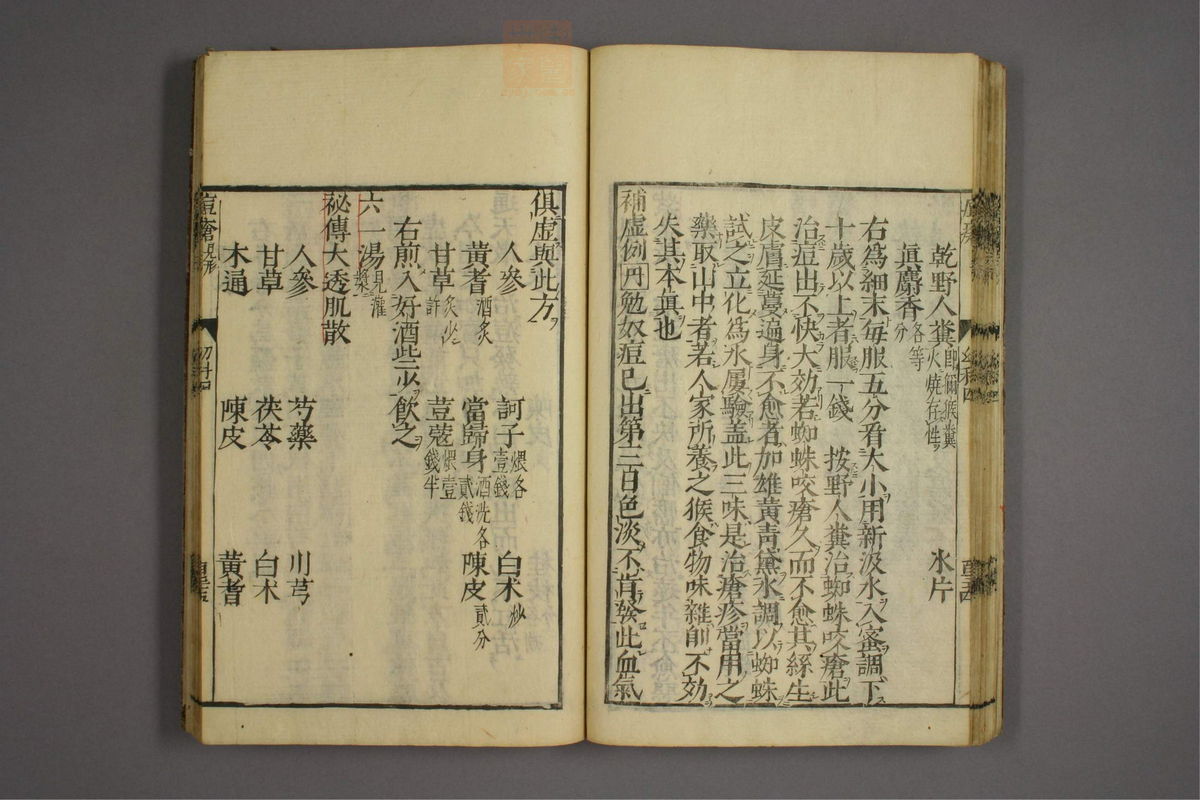 乾野人糞 即獼猴糞火燒存性 氷片
眞麝香 各等分
右爲細末每服五分看大小用新汲水入蜜調下
十歲以上者服一錢 按野人糞治蜘蛛咬瘡此
治痘出不快大効若蜘蛛咬瘡久而不愈其絲生
皮膚延蔓遍身不愈者加雄黃靑黛水調以蜘蛛
試之立化爲水屢驗盖此三味是治瘡疹當用之
藥取山中者若人家所養之猴食物味雜卽不効
失其本眞也
補虛例 丹 勉奴痘已出第三日色淡不肯發此血氣
俱虛與此方
人參 訶子 煨各壹錢 白朮 炒
黃耆 酒炙 當歸身 酒洗各貳錢 陳皮 貳分
甘草 炙少許 荳蔻 煨壹錢半
右煎入好酒些少飮之
六一湯 見灌漿
祕傳大透肌散
人參 芍藥 川芎
甘草 茯苓 白朮
木通 陳皮 黃耆
痘瘡 見形